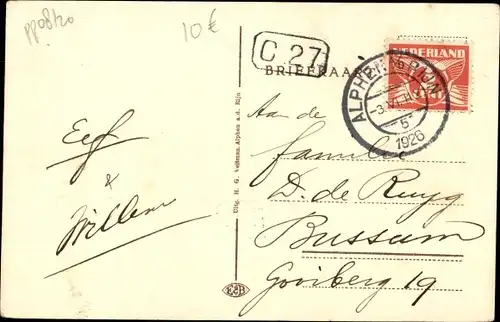 pp08120
10 €
C 27
BRIEFKAART
NEDERLAND
ALPHEN A/D RIJN
1926
Eef
&
Willem
Uitg. H. G. Veltman, Alphen a.d. Rijn
Aan de
familie
D. de Ruyg
Bussum
Gooiberg 19